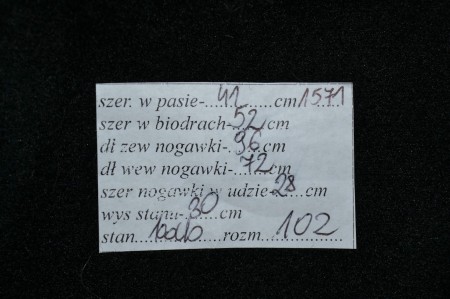 szer. w pasie-....41......cm 1571
szer w biodrach-52/cm
dł zew nogawki-.96.cm
dł wew nogawki-.72cm
szer nogawki w udzie-28...cm
wys stanu-.30...cm
stan..........rozm....102.........